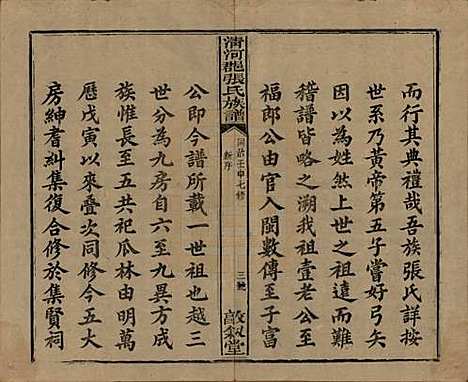 而行其典禮哉吾族張氏詳按
世系乃黃帝第五子嘗好弓矢
因以為姓然上世之祖遠而難
稽譜皆略之溯我祖壹老公三
福郎公由官入閩數傳至子富
清河郡張氏族譜
同治壬申七修
新序
三號
敦敘堂
公即今譜所載一世祖也越三
世分為九房自六至九異方成
族惟長至五共祀瓜林由明萬
曆戊寅以來疊次同修今五大
房紳耆糾集復合修於集賢祠